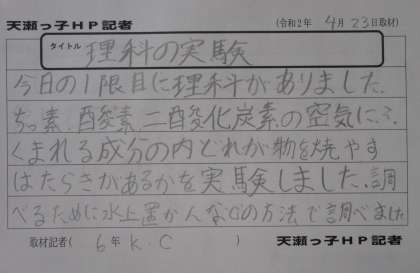 天瀬っ子HP記者 (令和2年 4月23日取材)
タイトル 理科の実験
今日の1限目に理科がありました。
ちっ素、酸素、二酸化炭素の空気にふ
くまれる成分の内どれが物を焼やす
はたらきがあるかを実験しました。調
べるために水上置かんなどの方法で調べました
取材記者( 6年 K.C ) 天瀬っ子HP記者